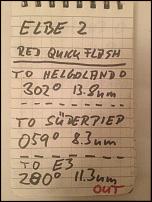 ELBE 2
RED QUICK FLASH
TO HELGOLAND
302° 13.8nm
TO SÜDERPIEP
059° 8.3nm
TO E3
280° 11.3nm
OUT